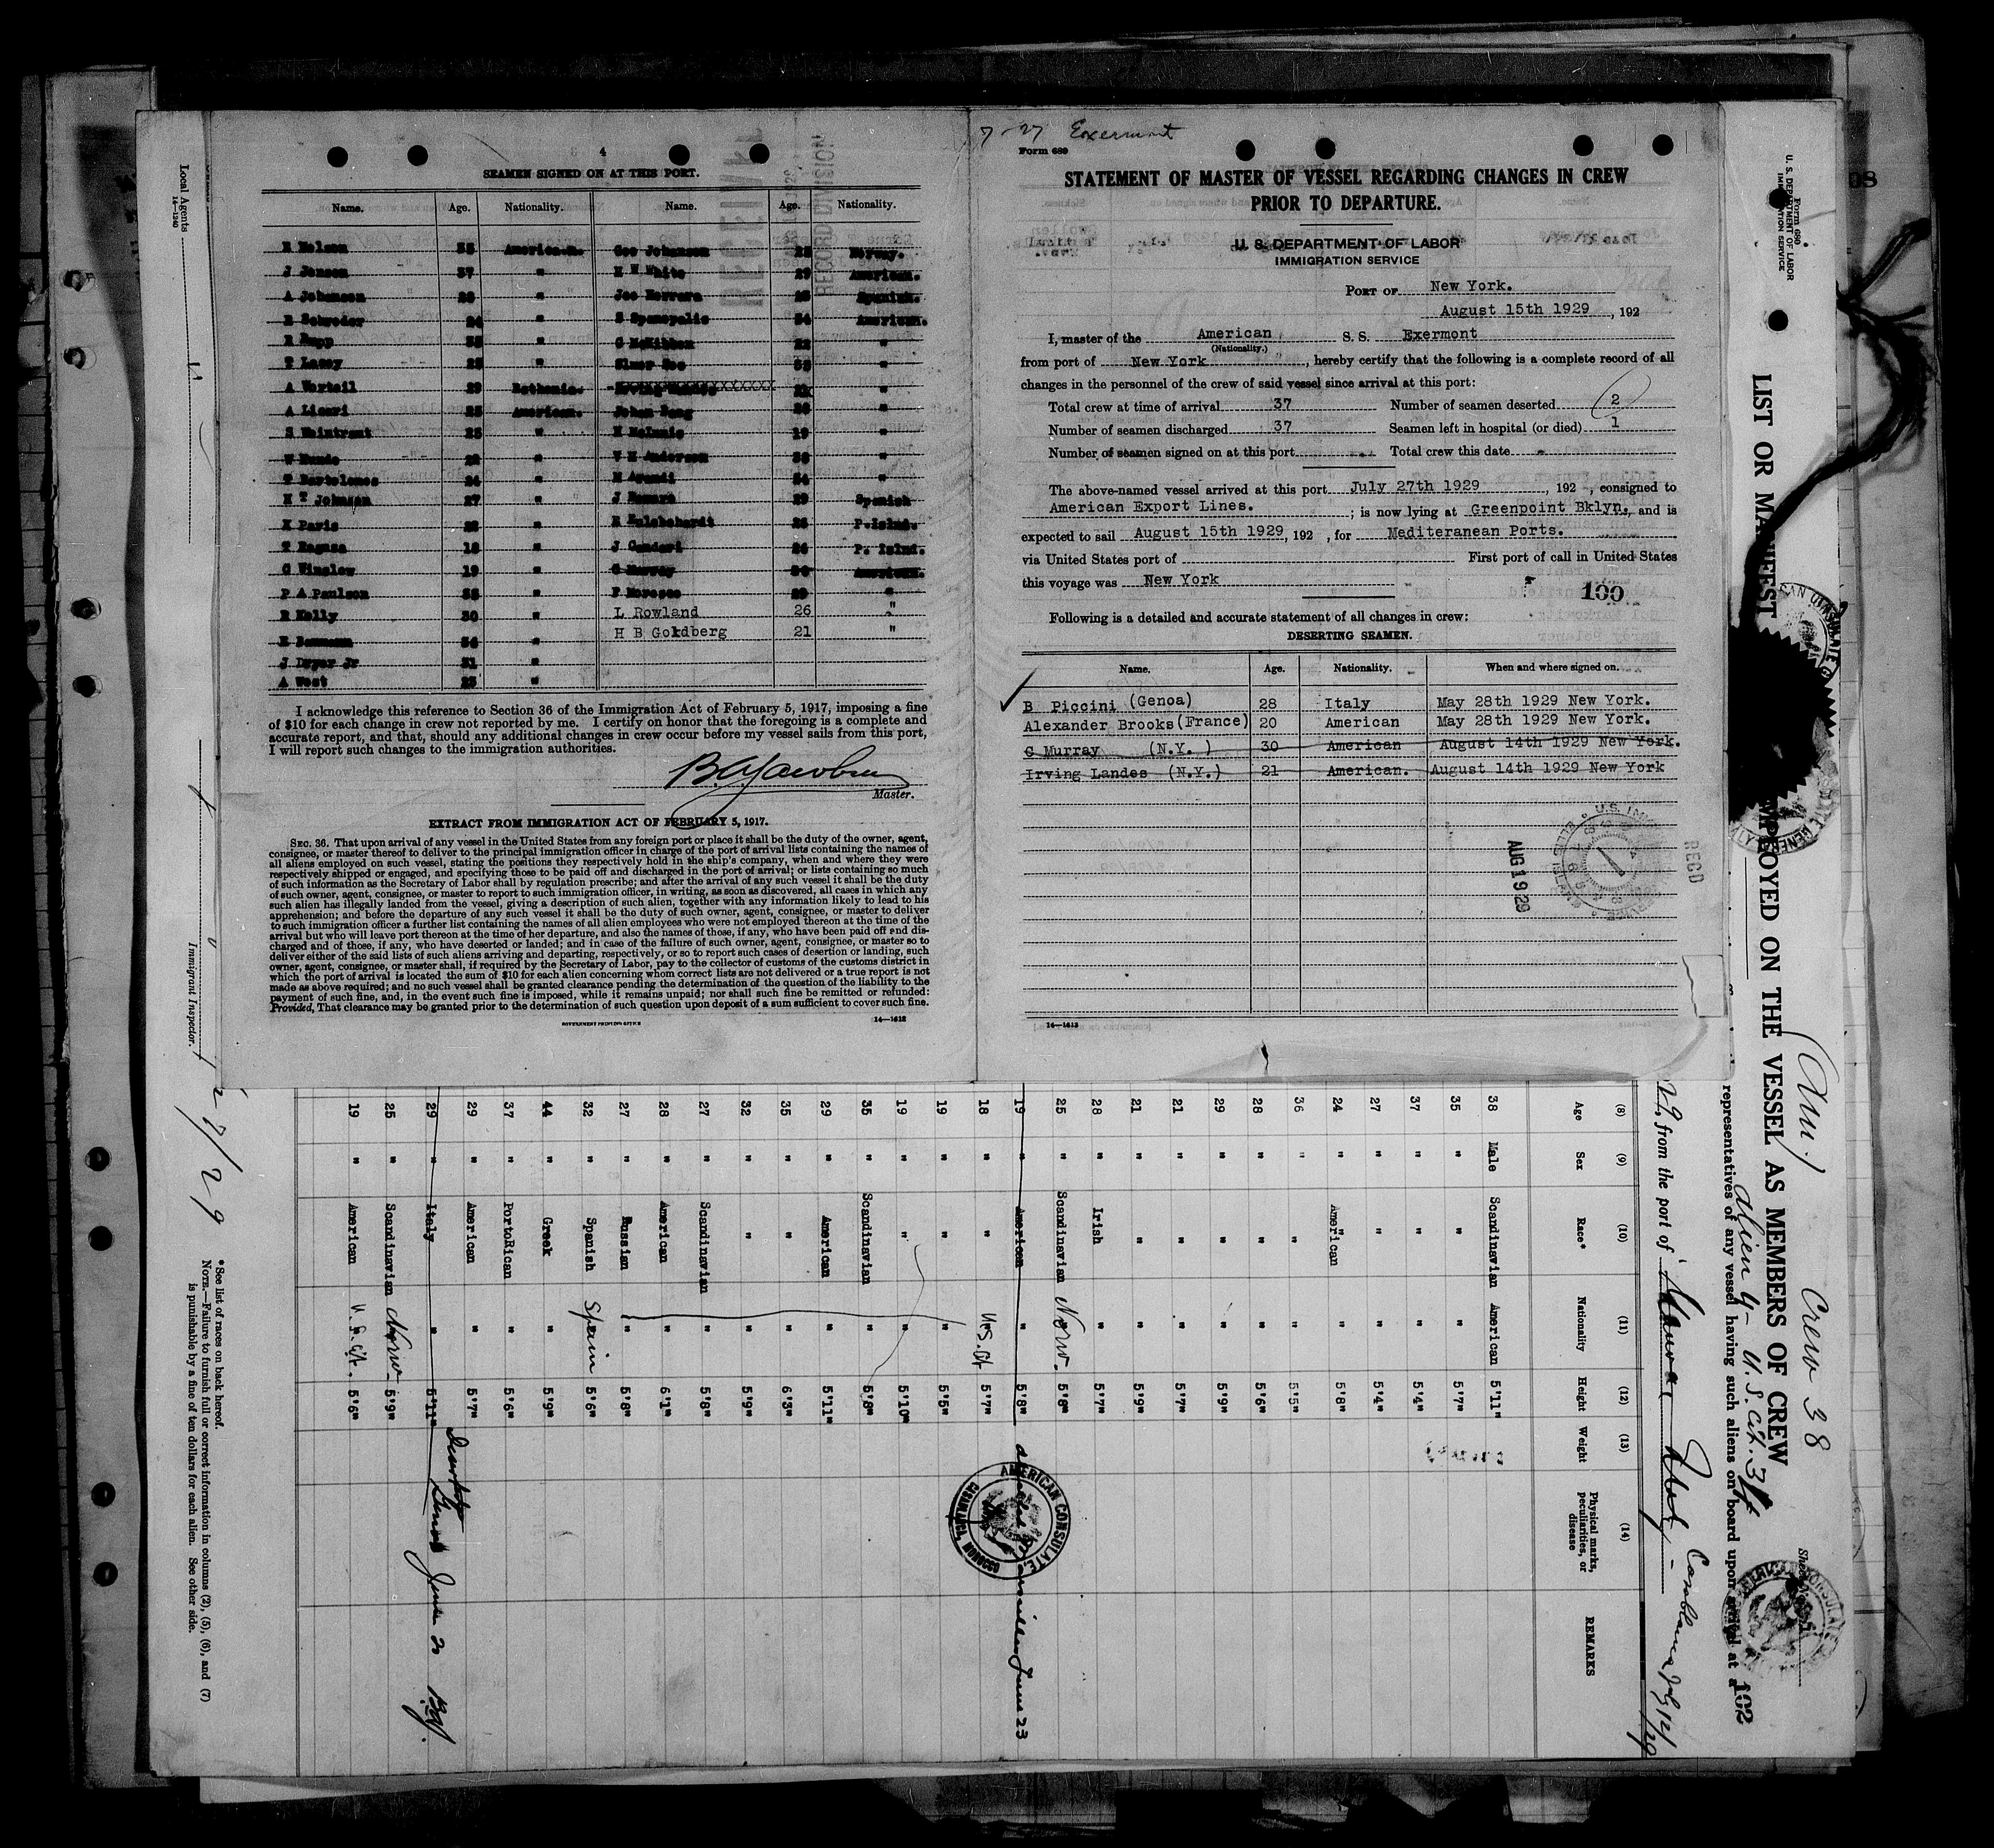 4
SEAMEN SIGNED ON AT THIS PORT.
Name. Age. Nationality. Name. Age. Nationality.
R Nelson 35 American. Geo Johansen 23 Norway.
J Jensen 37 " H W White 29 American.
A Johansen " Joe Herrera Spanish.
E Schroder 24 " S Spanopolis 34 American.
R Rupp 35 " G McKibben 22 "
T Lacey 25 " Elmer Roe 33 "
A Wartsil 29 Esthonia. 21 "
A Licari 25 American. Johan Berg 26 "
S Weintraut 25 " 19 "
W Runds 22 " V H Anderson "
T Bartolomes 24 " M Avendi 34 "
H T Johnson 27 " J Romara 29 Spanish
K Paris 22 " R 26 P. Islnd.
T Ragusa 18 " J Candari 26 P. Islnd.
G Winslow 19 " G Murray 30 American.
P A Paulsen " P Moresco 29 "
R Kelly 30 " L Rowland 26 "
E Baumann " H B Goldberg 21 "
J Dryer Jr 31 "
A West 23 "
I acknowledge this reference to Section 36 of the Immigration Act of February 5, 1917, imposing a fine
of $10 for each change in crew not reported by me. I certify on honor that the foregoing is a complete and
accurate report, and that, should any additional changes in crew occur before my vessel sails from this port,
I will report such changes to the immigration authorities.
Master.
EXTRACT FROM IMMIGRATION ACT OF FEBRUARY 5, 1917.
SEC. 36. That upon arrival of any vessel in the United States from any foreign port or place it shall be the duty of the owner, agent,
consignee, or master thereof to deliver to the principal immigration officer in charge of the port of arrival lists containing the names of
all aliens employed on such vessel, stating the positions they respectively hold in the ship's company, when and where they were
respectively shipped or engaged, and specifying those to be paid off and discharged in the port of arrival; or lists containing so much
of such information as the Secretary of Labor shall by regulation prescribe; and after the arrival of any such vessel it shall be the duty
of such owner, agent, consignee, or master to report to such immigration officer, in writing, as soon as discovered, all cases in which any
such alien has illegally landed from the vessel, giving a description of such alien, together with any information likely to lead to his
apprehension; and before the departure of any such vessel it shall be the duty of such owner, agent, consignee, or master to deliver
to such immigration officer a further list containing the names of all alien employees who were not employed thereon at the time of the
arrival but who will leave port thereon at the time of her departure, and also the names of those, if any, who have been paid off and dis-
charged and of those, if any, who have deserted or landed; and in case of the failure of such owner, agent, consignee, or master so to
deliver either of the said lists of such aliens arriving and departing, respectively, or so to report such cases of desertion or landing, such
owner, agent, consignee, or master shall, if required by the Secretary of Labor, pay to the collector of customs of the customs district in
which the port of arrival is located the sum of $10 for each alien concerning whom correct lists are not delivered or a true report is not
made as above required; and no such vessel shall be granted clearance pending the determination of the question of the liability to the
payment of such fine, and, in the event such fine is imposed, while it remains unpaid; nor shall such fine be remitted or refunded:
Provided, That clearance may be granted prior to the determination of such question upon deposit of a sum sufficient to cover such fine.
GOVERNMENT PRINTING OFFICE 14—1612
7-27 Exermont
Form 689
STATEMENT OF MASTER OF VESSEL REGARDING CHANGES IN CREW
PRIOR TO DEPARTURE.
U. S. DEPARTMENT OF LABOR
IMMIGRATION SERVICE
PORT OF New York.
August 15th 1929, 192
I, master of the American S. S. Exermont
(Nationality.)
from port of New York, hereby certify that the following is a complete record of all
changes in the personnel of the crew of said vessel since arrival at this port:
Total crew at time of arrival 37 Number of seamen deserted 2
Number of seamen discharged 37 Seamen left in hospital (or died) 1
Number of seamen signed on at this port Total crew this date
The above-named vessel arrived at this port July 27th 1929, 192 , consigned to
American Export Lines. ; is now lying at Greenpoint Bklyn., and is
expected to sail August 15th 1929, 192 , for Mediteranean Ports.
via United States port of First port of call in United States
this voyage was New York
100
Following is a detailed and accurate statement of all changes in crew:
DESERTING SEAMEN.
Name. Age. Nationality. When and where signed on.
B Piccini (Genoa) 28 Italy May 28th 1929 New York.
Alexander Brooks (France) 20 American May 28th 1929 New York.
G Murray (N.Y. ) 30 American August 14th 1929 New York.
Irving Landes (N.Y.) 21 American. August 14th 1929 New York
AUG 1929
RECD
14—1612
Local Agents
14—1240
Immigrant Inspector.
Form 680
U. S. DEPARTMENT OF LABOR
IMMIGRATION SERVICE
LIST OR MANIFEST EMPLOYED ON THE VESSEL AS MEMBERS OF CREW
Crew 38
alien 4 - U.S. cit. 34
representatives of any vessel having such aliens on board upon arrival at a
102
29, from the port of Casablanca July 12/29
(8) (9) (10) (11) (12) (13) (14)
Age Sex Race* Nationality Height Weight Physical marks, peculiarities, or disease REMARKS
38 Male Scandinavian American 5'11"
35 " " " 5'7"
37 " " " 5'4"
27 " " " 5'4"
24 " American " 5'8"
36 " " " 5'5"
28 " " " 5'6"
29 " " " 5'9"
21 " " " 5'7"
21 " " " 5'9"
28 " Irish " 5'7"
25 " Scandinavian Norw. 5'8"
19 " American " 5'8" Marseilles June 23
18 " " U.S. Cit 5'7"
19 " " " 5'5"
19 " " " 5'10"
35 " Scandinavian " 5'8"
29 " American " 5'11"
35 " " " 6'3"
32 " " " 5'9"
27 " Scandinavian " 5'8"
28 " American " 6'1"
27 " Russian " 5'8"
32 " Spanish Spain 5'6"
44 " Greek " 5'9"
37 " PortoRican " 5'6"
29 " American " 5'7"
29 " Italy " 5'11" Genoa June 20
25 " Scandinavian Norw. 5'9"
19 " American U.S. Cit. 5'6"
AMERICAN CONSULATE, CASABLANCA, MOROCCO
*See list of races on back hereof.
NOTE.—Failure to furnish full or correct information in columns (2), (5), (6), and (7)
is punishable by a fine of ten dollars for each alien. See other side.